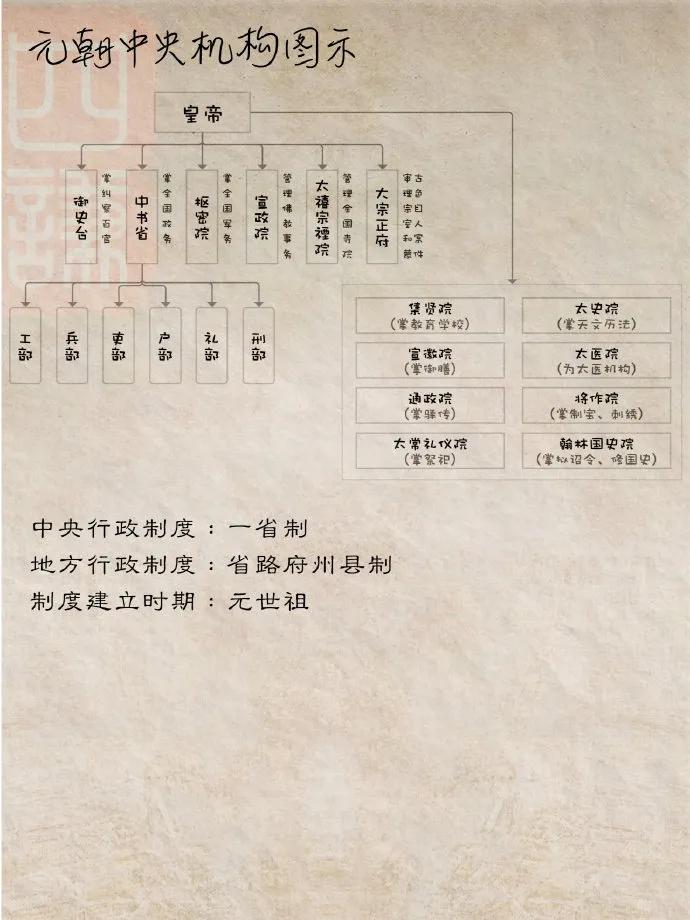 元朝中央机构图示
皇帝
御史台
掌纠察百官
中书省
掌全国政务
枢密院
掌全国军务
宣政院
管理佛教事务
太禧宗禋院
管理全国寺院
大宗正府
审理宗室和蒙
古色目人案件
工部
兵部
吏部
户部
礼部
刑部
集贤院
(掌教育学校)
太史院
(掌天文历法)
宣徽院
(掌御膳)
太医院
(为太医机构)
通政院
(掌驿传)
将作院
(掌制宝、刺绣)
太常礼仪院
(掌祭祀)
翰林国史院
(掌拟诏令、修国史)
中央行政制度：一省制
地方行政制度：省路府州县制
制度建立时期：元世祖